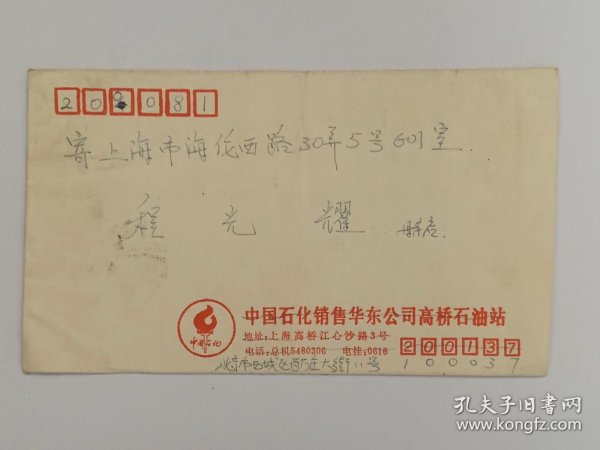 200081
寄上海市海伦西路30弄5号601室.
程光耀
中国石化
中国石化销售华东公司高桥石油站
地址:上海高桥江心沙路3号
电话:总机5480306 电挂:0616
200137
100037
北京市西城区百万庄大街11号
孔夫子旧书网
www.kongfz.com